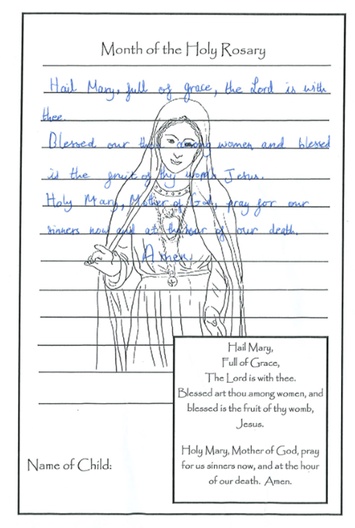 Month of the Holy Rosary
Hail Mary, full of grace, the Lord is with
thee.
Blessed our thou among women and blessed
is the fruit of thy womb, Jesus.
Holy Mary, Mother of God, pray for our
sinners now and at the hour of our death.
Amen
Hail Mary,
Full of Grace,
The Lord is with thee.
Blessed art thou among women, and
blessed is the fruit of thy womb,
Jesus.
Holy Mary, Mother of God, pray
for us sinners now, and at the hour
of our death. Amen.
Name of Child: